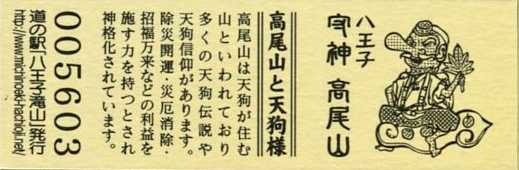 八王子
守神 高尾山
高尾山と天狗様
高尾山は天狗が住む
山といわれており
多くの天狗伝説や
天狗信仰があります。
除災開運・災厄消除・
招福万来などの利益を
施す力を持つとされ
神格化されています。
005603
道の駅「八王子滝山」発行
http://www.michinoeki-hachioji.net/